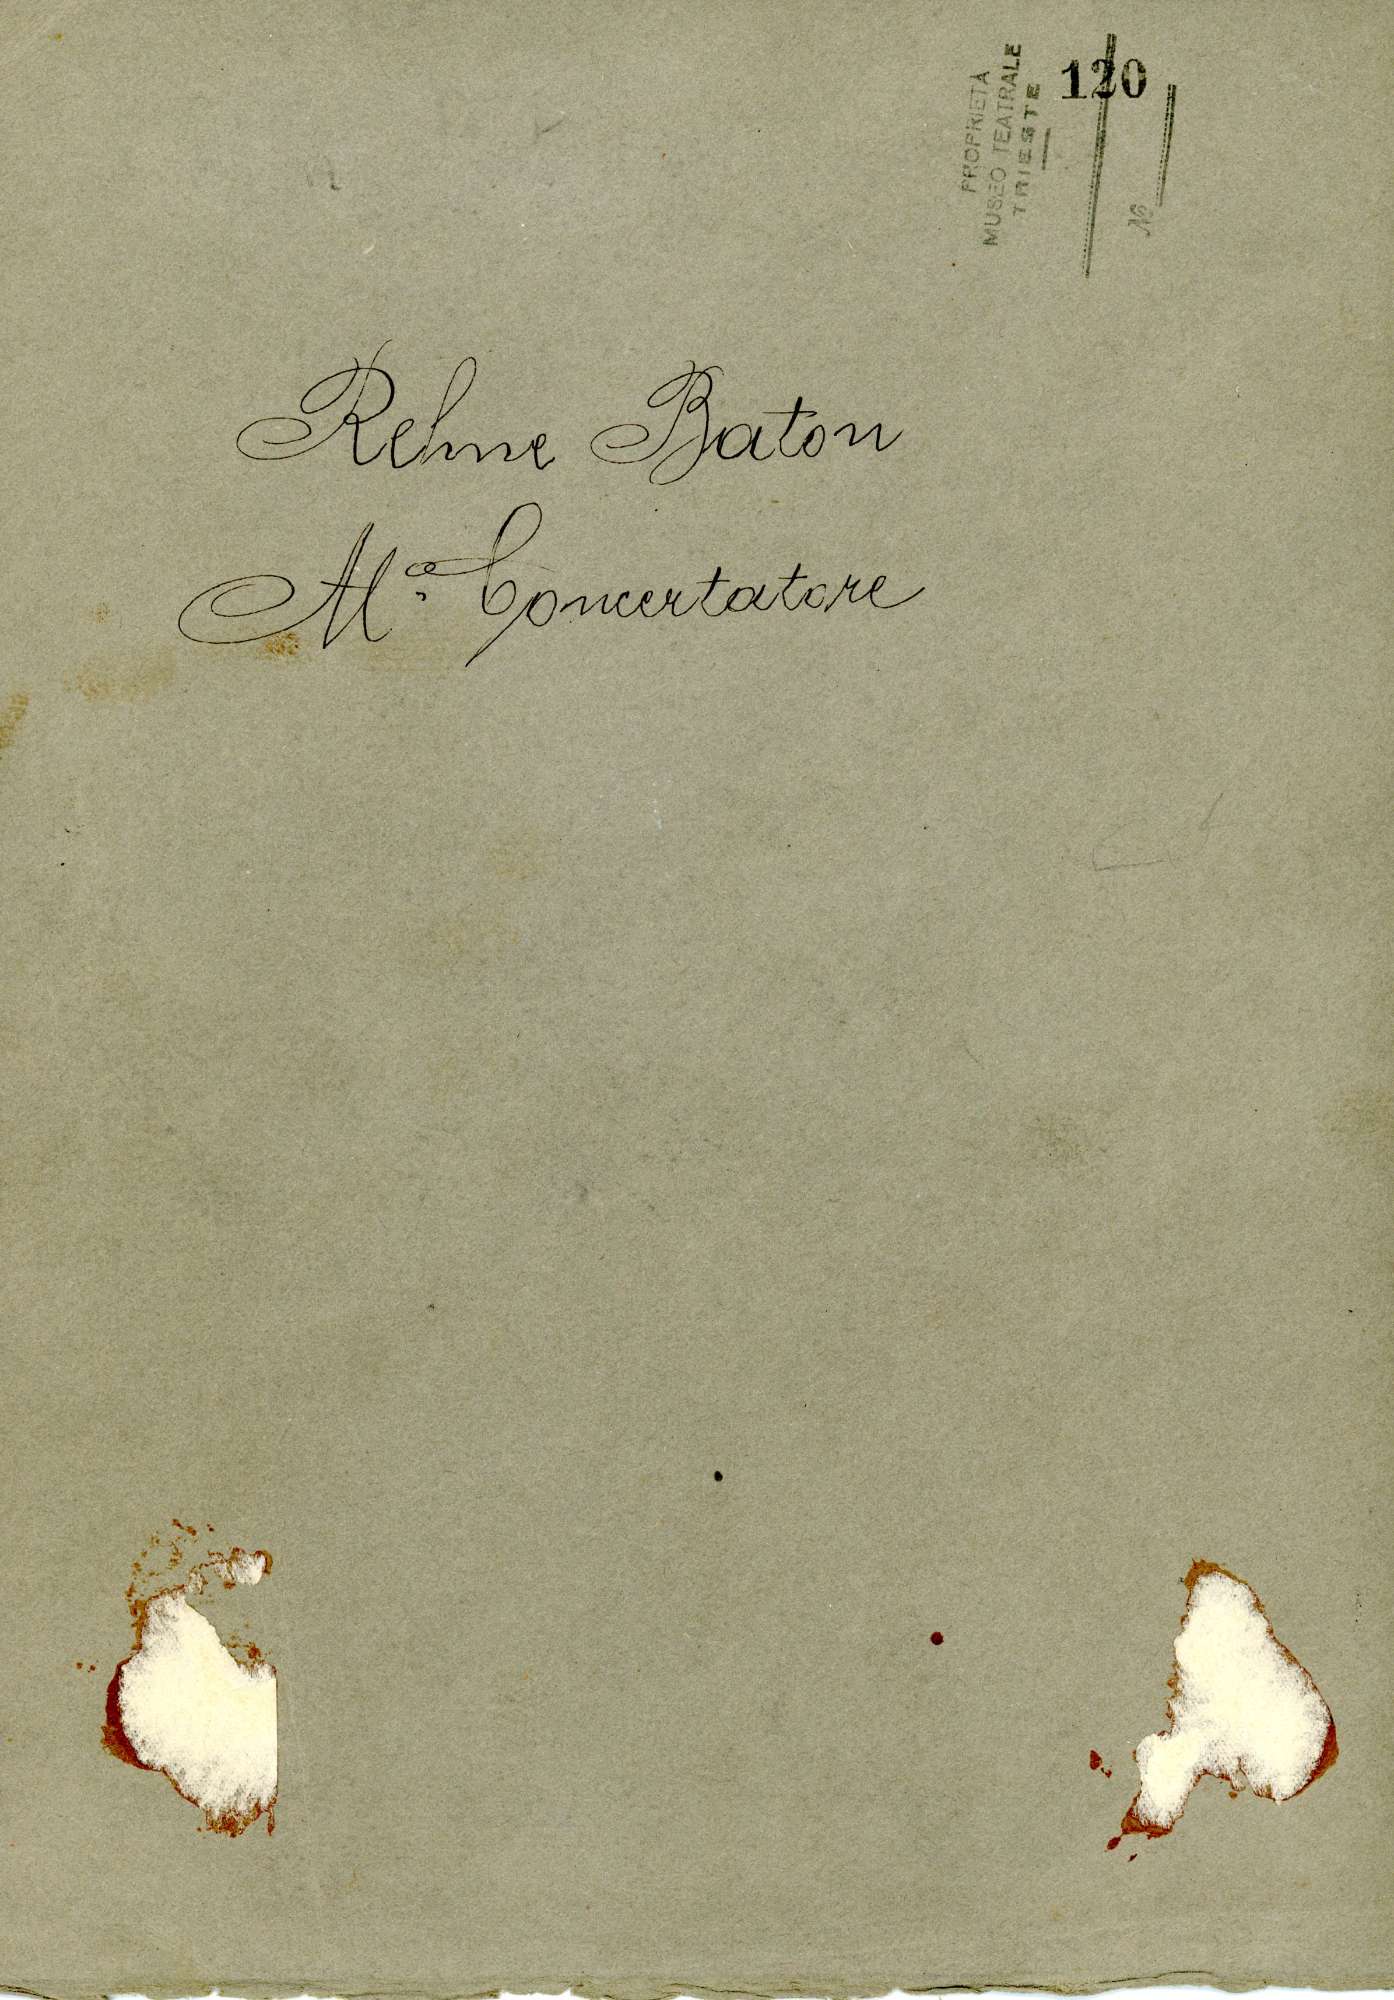 120
PROPRIETÀ
MUSEO TEATRALE
TRIESTE
№
Rehne Baton
Mº Concertatore